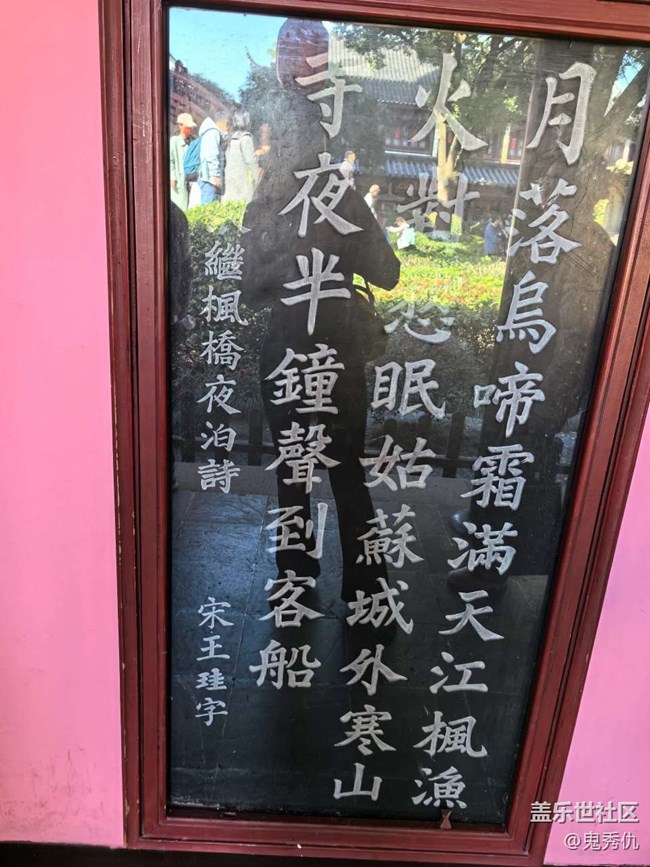 月落烏啼霜滿天江楓漁
火對愁眠姑蘇城外寒山
寺夜半鐘聲到客船
繼楓橋夜泊詩
宋王珪字
盖乐世社区
@鬼秀仇